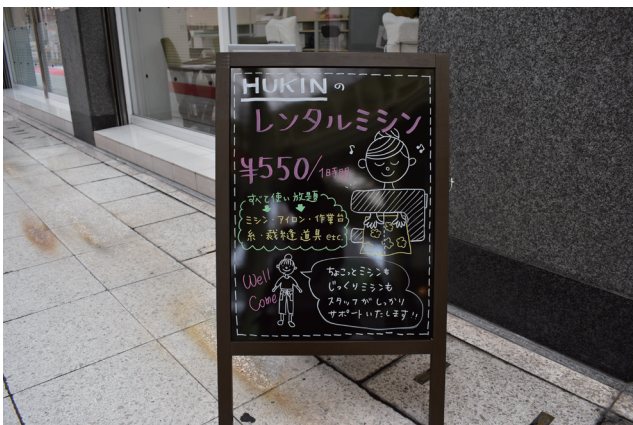 HUKINの
レンタルミシン
¥550/1時間
すべて使い放題
ミシン・アイロン・作業台
糸・裁縫道具 etc.
Well
Come
ちょこっとミシンも
じっくりミシンも
スタッフがしっかり
サポートいたします!!